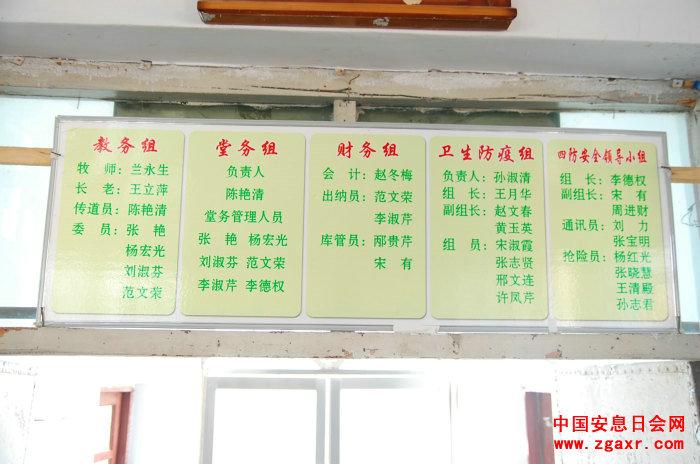 教务组
牧 师：兰永生
长 老：王立萍
传道员：陈艳清
委 员：张 艳
杨宏光
刘淑芬
范文荣
堂务组
负责人
陈艳清
堂务管理人员
张 艳 杨宏光
刘淑芬 范文荣
李淑芹 李德权
财务组
会 计：赵冬梅
出纳员：范文荣
李淑芹
库管员：邴贵芹
宋 有
卫生防疫组
负责人：孙淑清
组 长：王月华
副组长：赵文春
黄玉英
组 员：宋淑霞
张志贤
邢文连
许凤芹
四防安全领导小组
组 长：李德权
副组长：宋 有
周进财
通讯员：刘 力
张宝明
抢险员：杨红光
张晓慧
王清殿
孙志君
中国安息日会网
www.zgaxr.com